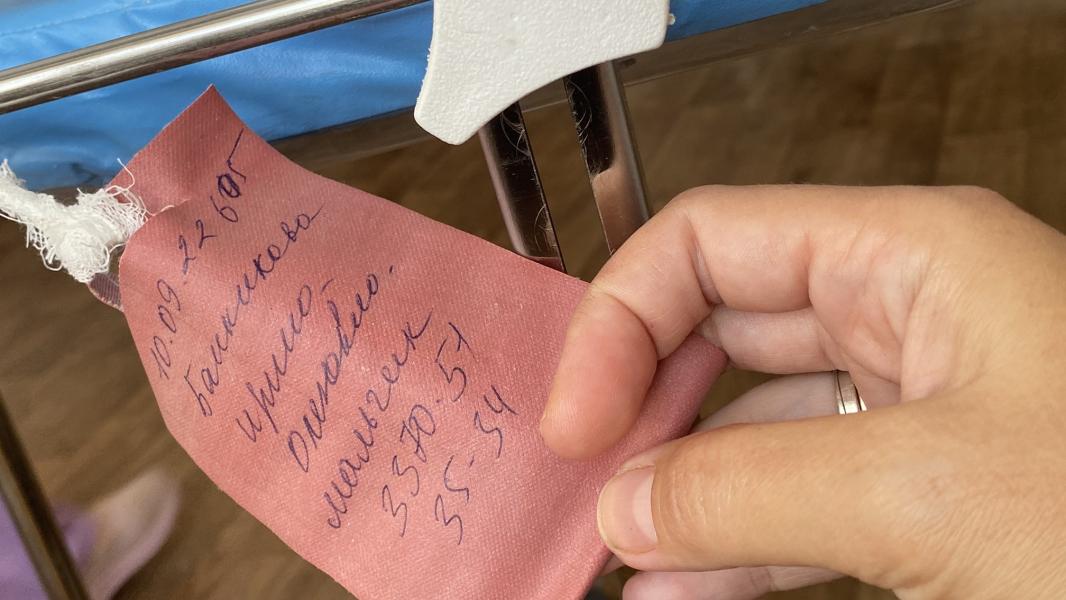 10.09.22 605
Банникова
Ирина
Олеговна.
мальчик
3370.51
35-34